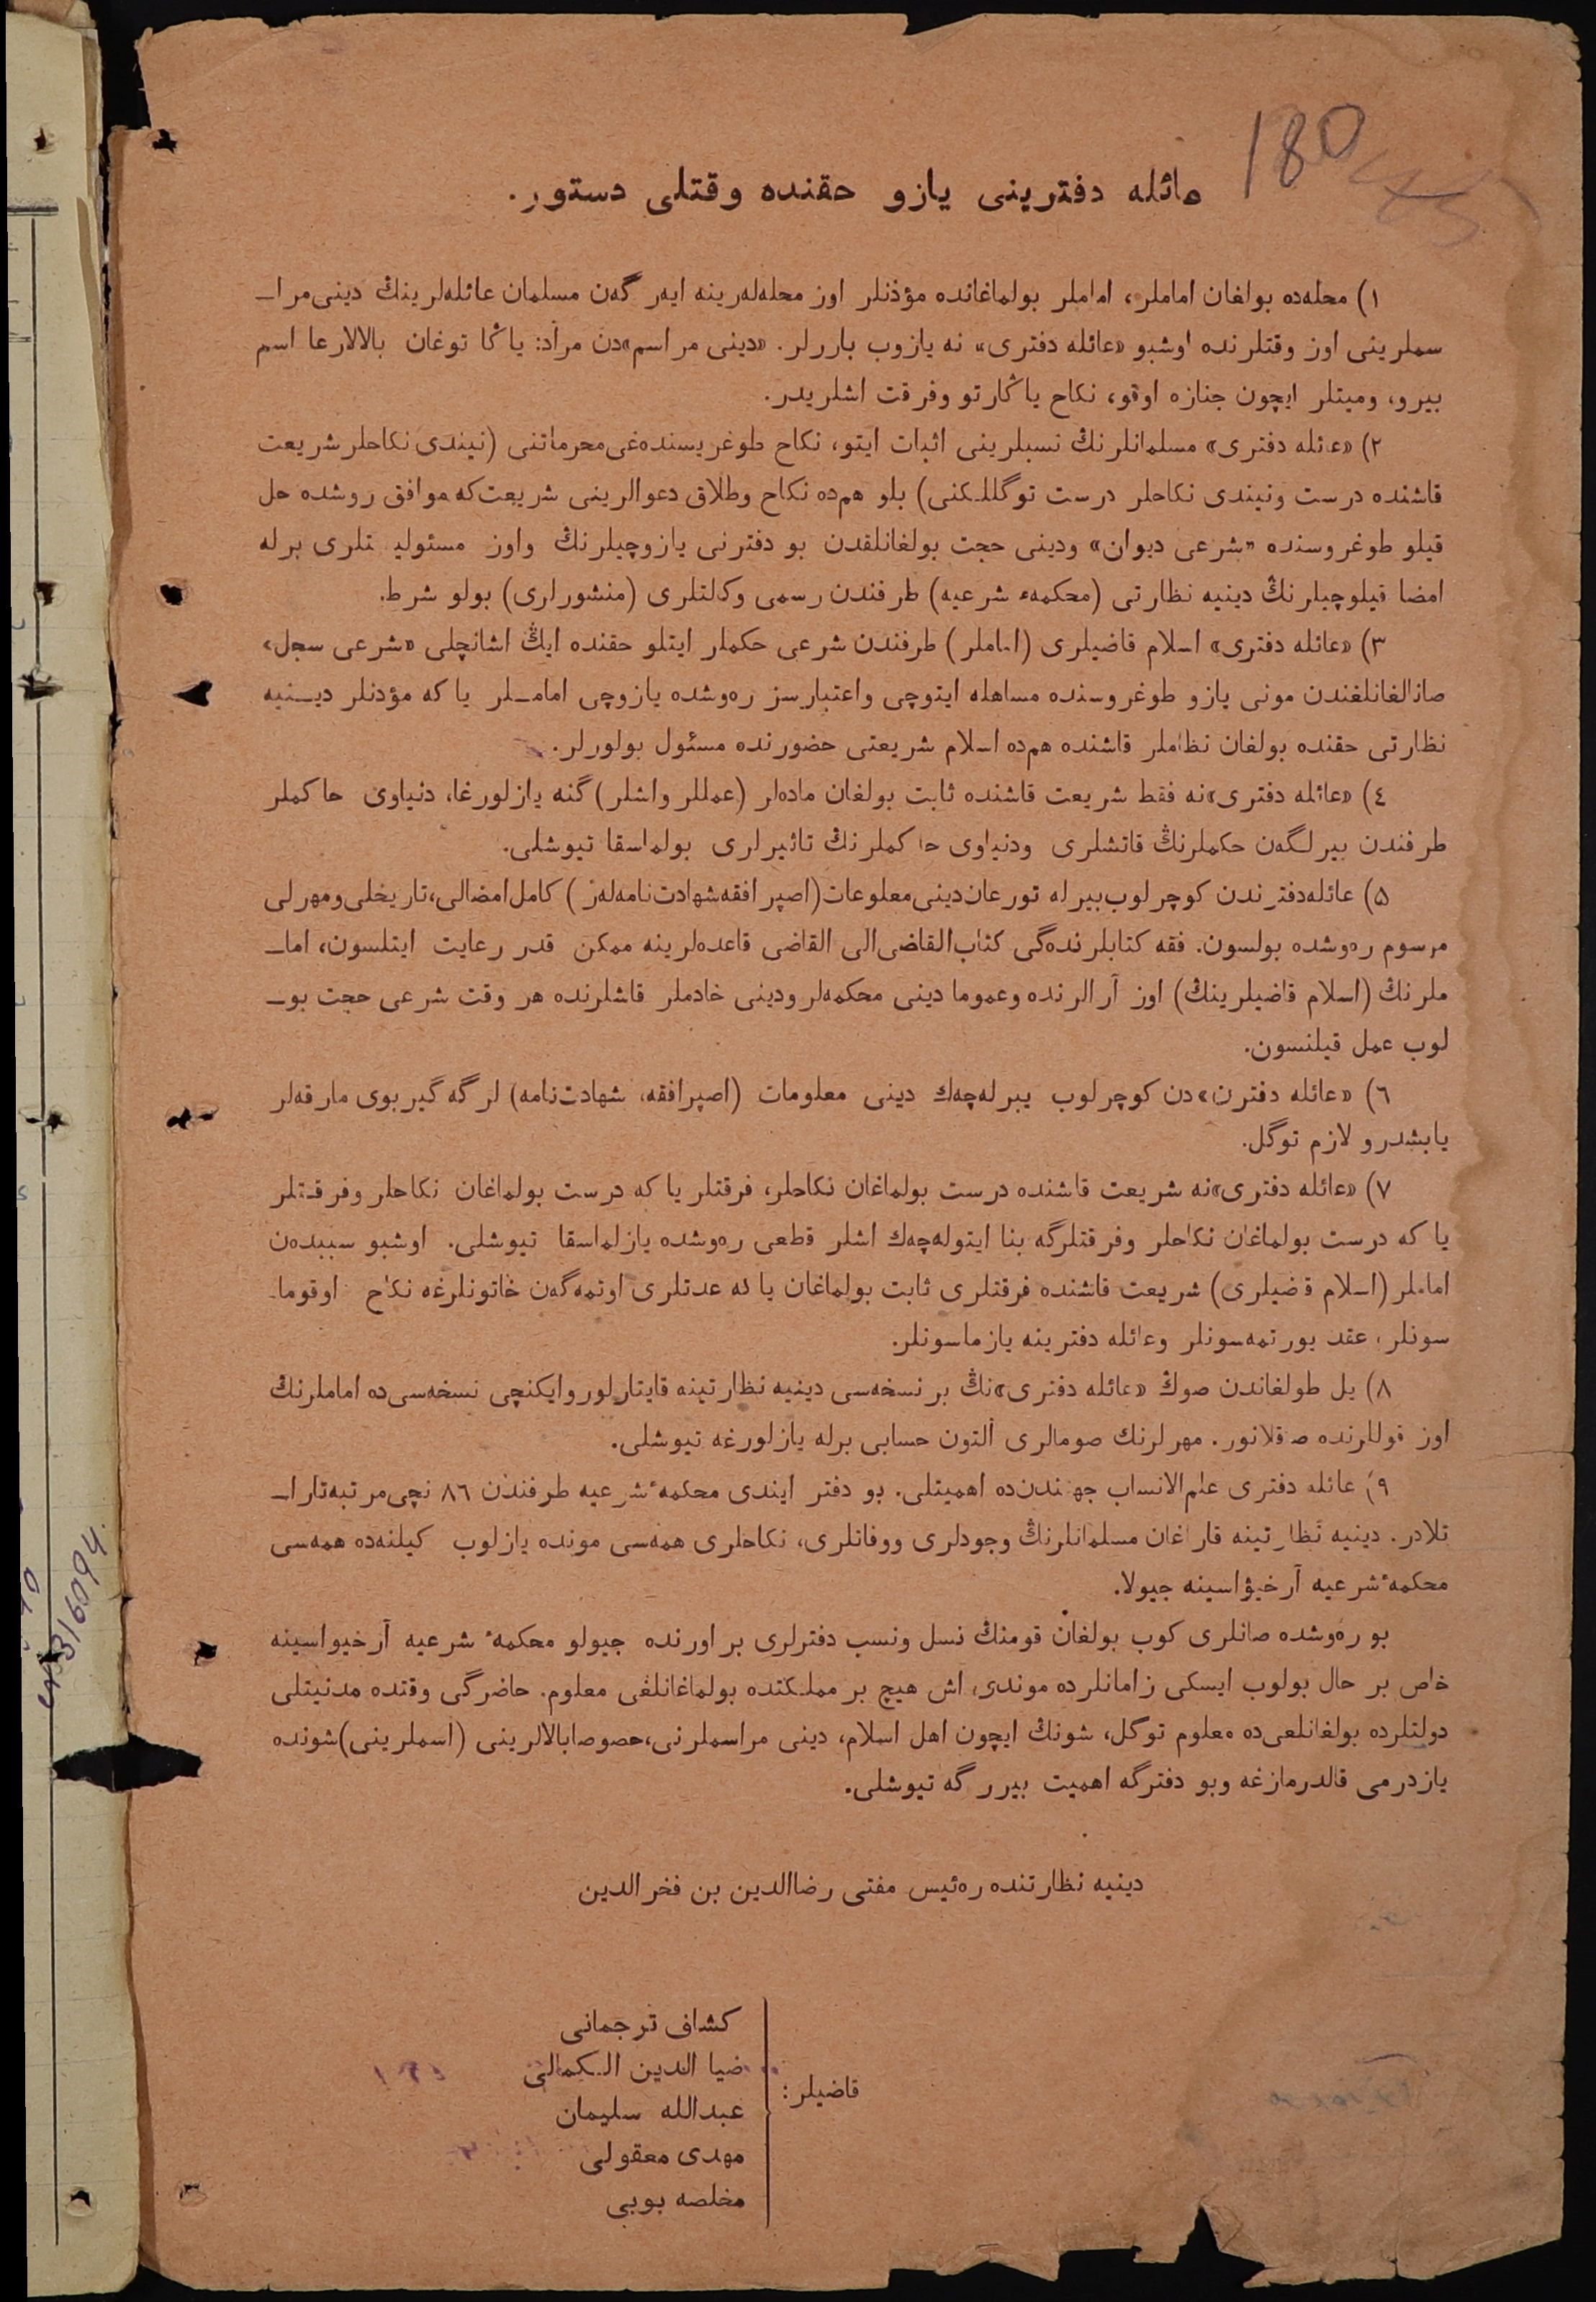 180
عائله دفترینی یازو حقنده وقتلی دستور.
١) محله‌ده بولغان اماملر، اماملر بولماغانده مؤذنلر اوز محله‌لەرینه ایەر گەن مسلمان عائله‌لرینڭ دینی مرا۔
سملرینی اوز وقتلرنده اوشبو «عائله دفتری» نه یازوب باررلر. «دینی مراسم»دن مراد: یاڭا توغان بالالارعا اسم
بیرو، ومیتلر ایچون جنازه اوقو، نکاح یاڭارتو وفرقت اشلریدر.
٢) «عائله دفتری» مسلمانلرنڭ نسبلرینی اثبات ایتو، نکاح طوغریسنده‌غی محرماتنی (نیندی نکاحلر شریعت
قاشنده درست ونیندی نکاحلر درست توگللکنی) بلو هم‌ده نکاح وطلاق دعوالرینی شریعت‌که موافق روشده حل
قیلو طوغروسنده «شرعی دیوان» ودینی حجت بولغانلقدن بو دفترنی یازوچیلرنڭ واوز مسئولیتلری برله
امضا قیلوچیلرنڭ دینیه نظارتی (محکمهء شرعیه) طرفندن رسمی وکالتلری (منشورلری) بولو شرط.
٣) «عائله دفتری» اسلام قاضیلری (اماملر) طرفندن شرعی حکملر ایتلو حقنده ایڭ اشانچلی «شرعی سجل»
صانالغانلغندن مونی یازو طوغروسنده مساهله ایتوچی واعتبارسز رەوشده یازوچی امامـلر یا که مؤذنلر دیـنیه
نظارتی حقنده بولغان نظاملر قاشنده هم‌ده اسلام شریعتی حضورنده مسئول بولورلر.
٤) «عائله دفتری»نه فقط شریعت قاشنده ثابت بولغان ماده‌لر (عمللر واشلر) گنه یازلورغا، دنیاوی حاکملر
طرفندن بیرلگەن حکملرنڭ قاتشلری ودنیاوی حاکملرنڭ تاثیرلری بولماسقا تیوشلی.
۵) عائله‌دفترندن کوچرلوب بیرله تورعان دینی معلوعات (اصپرافقه شهادت‌نامه‌لەر) کامل امضالی، تاریخلی ومهرلی
مرسوم رەوشده بولسون. فقه کتابلرنده‌گی کتاب القاضی الی القاضی قاعده‌لرینه ممکن قدر رعایت ایتلسون، اما۔
ملرنڭ (اسلام قاضیلرینڭ) اوز آرالرنده وعموما دینی محکمه‌لر ودینی خادملر قاشلرنده هر وقت شرعی حجت بو۔
لوب عمل قیلنسون.
٦) «عائله دفترن» دن کوچرلوب بیرله‌چەك دینی معلومات (اصپرافقه، شهادت‌نامه) لرگه گیربوی مارقه‌لر
یابشدرو لازم توگل.
٧) «عائله دفتری»نه شریعت قاشنده درست بولماغان نکاحلر، فرقتلر یا که درست بولماغان نکاحلر وفرقتلر
یا که درست بولماغان نکاحلر وفرقتلرگه بنا ایتوله‌چەك اشلر قطعی رەوشده یازلماسقا تیوشلی. اوشبو سببدەن
اماملر (اسلام قاضیلری) شریعت قاشنده فرقتلری ثابت بولماغان یا که عدتلری اوتمەگەن خاتونلرغه نکاح اوقوما۔
سونلر، عقد یورتمه‌سونلر وعائله دفترینه یازماسونلر.
٨) یل طولغاندن صوڭ «عائله دفتری»نڭ بر نسخه‌سی دینیه نظارتینه قایتارلور وایکنچی نسخه‌سی ده اماملرنڭ
اوز قوللرنده صاقلانور. مهرلرنك صومالری آلتون حسابی برله یازلورغه تیوشلی.
٩) عائله دفتری علم الانساب جهتندن‌ده اهمیتلی. بو دفتر ایندی محکمهٔ شرعیه طرفندن ٨٦ نچی مرتبه تارا۔
تلادر. دینیه نظارتینه قاراغان مسلمانلرنڭ وجودلری ووفاتلری، نکاحلری همه‌سی مونده یازلوب کیلنه‌ده همه‌سی
محکمهٔ شرعیه آرخیۋاسینه جیولا.
بو رەوشده صانلری کوب بولغان قومنڭ نسل ونسب دفترلری بر اورنده جیولو محکمهٔ شرعیه آرخیواسینه
خاص بر حال بولوب ایسکی زمانلرده موندی اش هیچ بر مملکتده بولماغانلغی معلوم. حاضرگی وقتده مدنیتلی
دولتلرده بولغانلعی‌ده معلوم توگل، شونڭ ایچون اهل اسلام، دینی مراسملرنی، خصوصا بالالرینی (اسملرینی) شونده
یازدرمی قالدرمازغه وبو دفترگه اهمیت بیررگه تیوشلی.
دینیه نظارتنده رەئیس مفتی رضاالدین بن فخرالدین
قاضیلر:
کشاف ترجمانی
ضیا الدین الکمالی
عبدالله سلیمان
مهدی معقولی
مخلصه بوبی